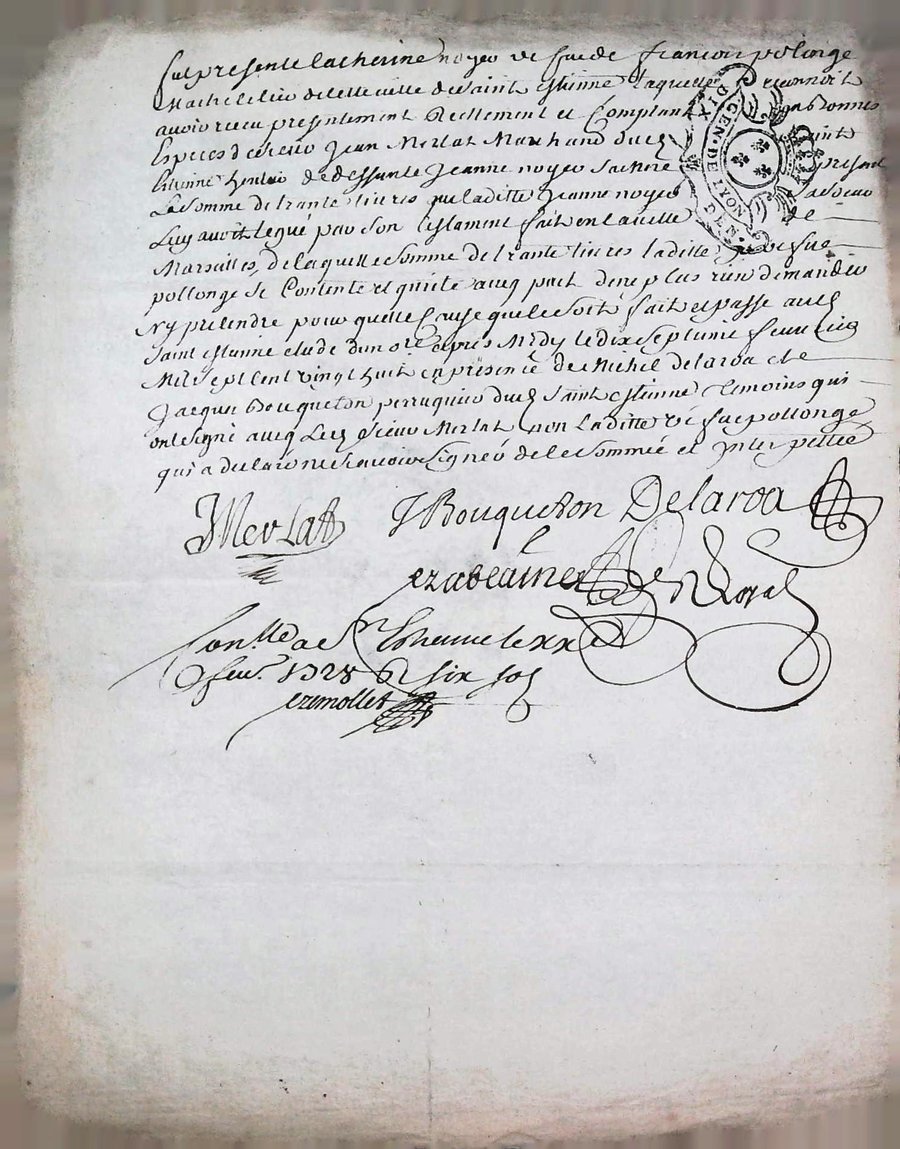 fut presente Catherine noyer vesfue de francois polonge
Maitre de la ville de Saint Estienne laquelle reconnoit
avoir reçu presentement Reellement et Comptant en bonnes
Especes de Jean Merlat Marchand dud Saint
Estienne de deffunte Jeanne noyer sa mere
La Somme de trante livres que laditte Jeanne noyer
Luy avoit legué par son testament fait en la ville de
Marseilles, de laquelle somme de trante livres laditte vesfue
pollonge se Contente et quitte avecq pact de ne plus rien demander
ny pretendre pour quelle Cause que ce soit fait et passé aud
Saint Estienne etude du nore apres Midy le dix septieme feuvrier
Mil sept cent vingt huit en presence de Michel delaroa et de
Jacques Bouqueton perruquier dud Saint Estienne temoins qui
ont signé avecq led sieur Merlat non laditte vesfue pollonge
qui a declaré ne sçavoir signer de ce sommée et Interpellée
JMerlat JBouqueton Delaroa
DIX
GEN. DE LYON
DEN.
Conlle a St Estienne le
feur. 1728 six sol
ezemollet